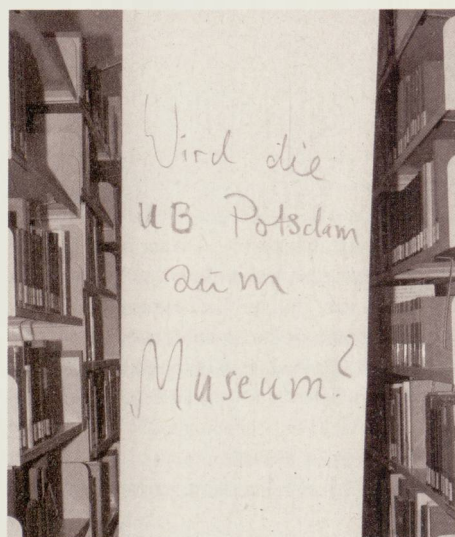 Wird die
UB Potsdam
zum
Museum?